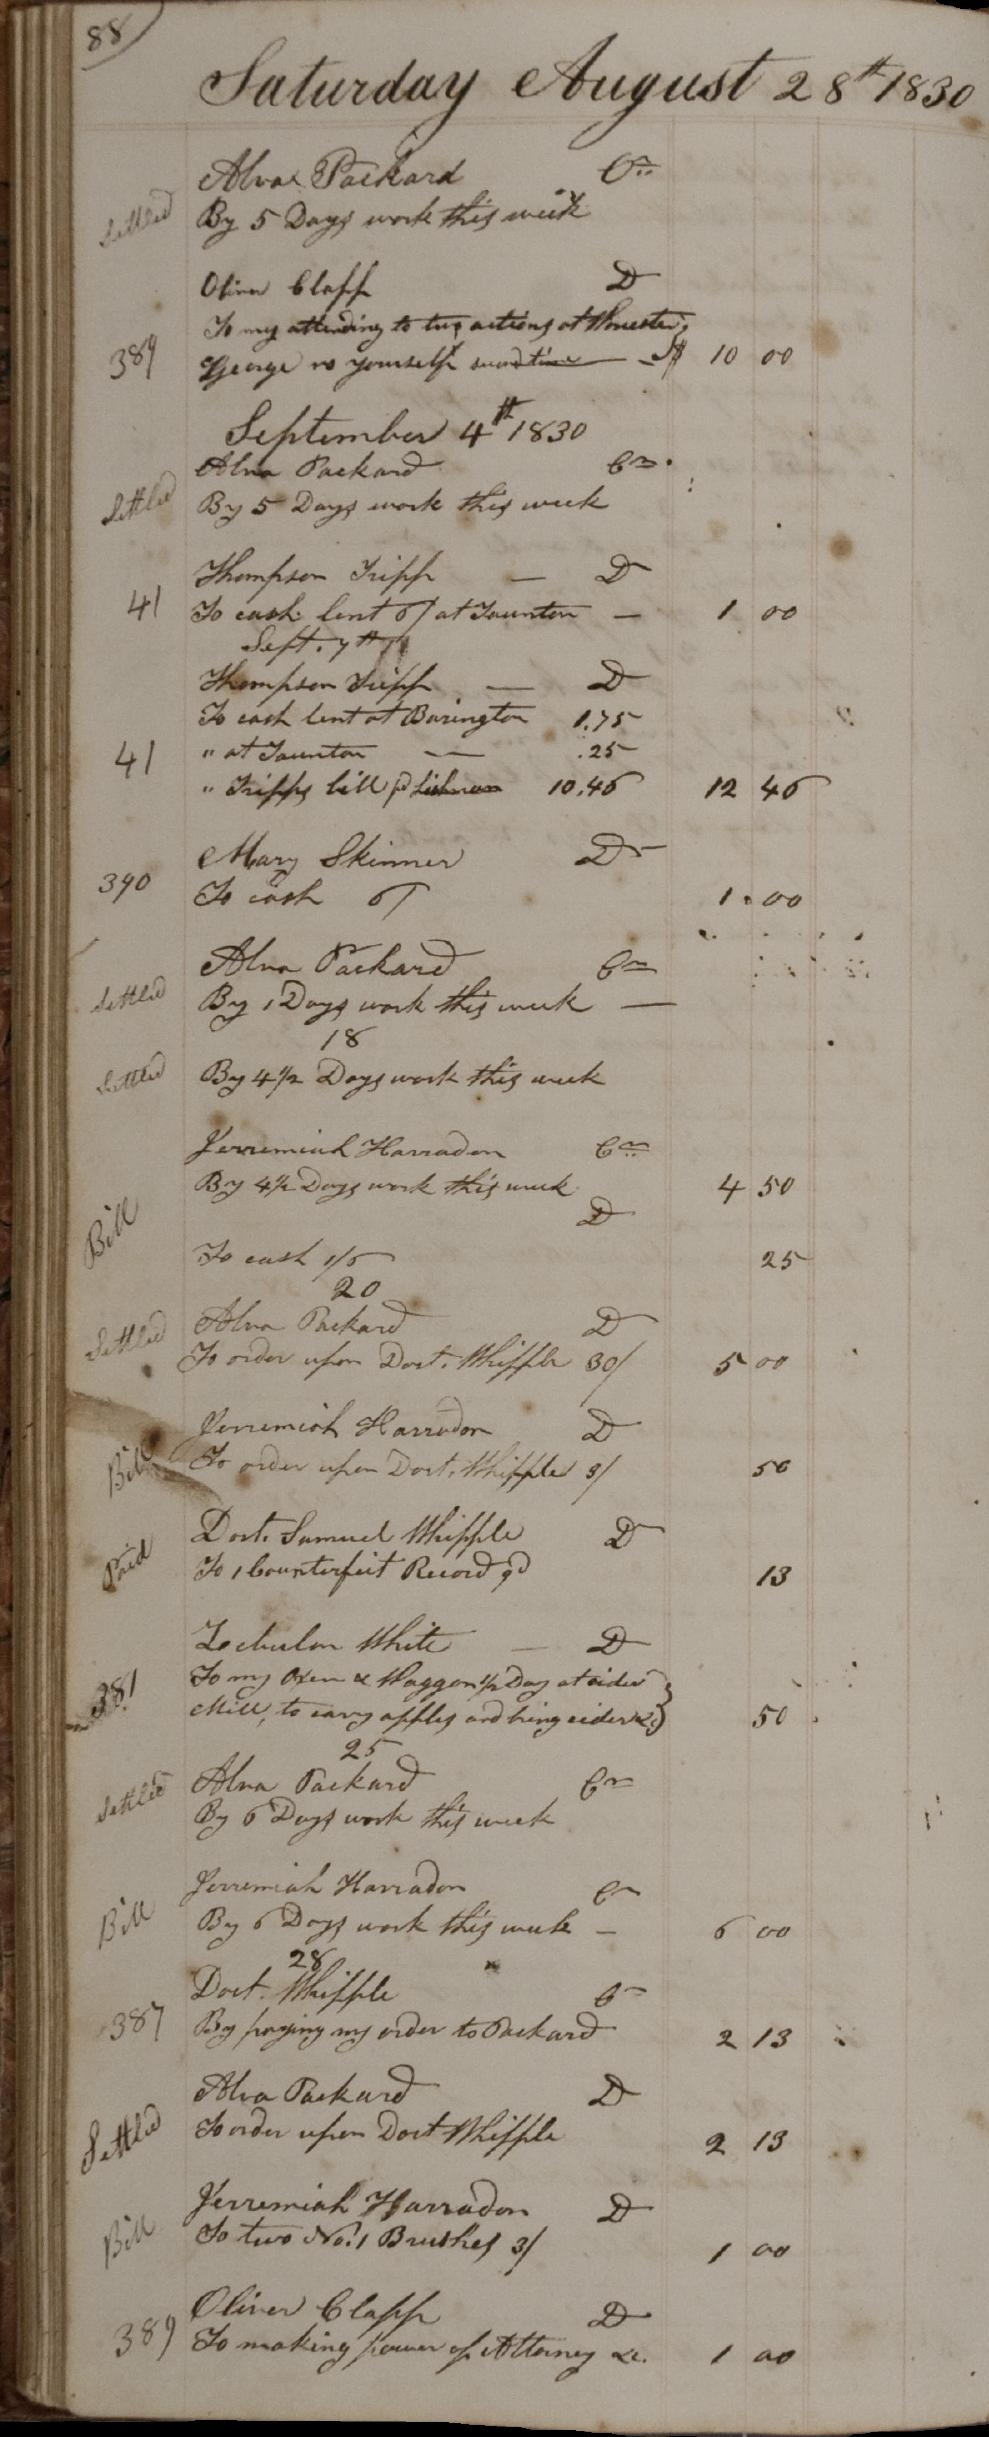 88
Saturday August 28th 1830
Alva Packard Cr
Settled By 5 Days work this week
Oliver Clapp D
To my attending to two actions at
389 George vs yourself 10 00
September 4th 1830
Alva Packard Cr
Settled By 5 Days work this week
Thompson Tripp — D
41 To cash lent 6/ at Taunton — 1 00
Sept. 7th
Thompson Tripp — D
To cash lent at Barington 1.75
41 " at Taunton — .25
" Tripps bill pd 10.46 12 46
Mary Skinner Dr
390 To cash 6/ 1.00
Alva Packard Cr
Settled By 1 Days work this week —
18
Settled By 4 1/2 Days work this week
Jerremiah Harradon Cr
By 4 1/2 Days work this week 4 50
Bill D
To cash 1/6 25
20
Settled Alva Packard D
To order upon Doct. Whipple 30/ 5 00
Jerremiah Harradon D
Bill To order upon Doct. Whipple 3/ 50
Doct. Samuel Whipple D
Paid To 1 Counterfeit Record 9d 13
Zebulon White — D
381 To my Oxen & Waggon 1/2 Day at cider
Mill, to carry apples and bring cider &c 50
25
Settled Alva Packard Cr
By 6 Days work this week
Jerremiah Harradon Cr
Bill By 6 Days work this week — 6 00
28
Doct. Whipple Cr
387 By paying my order to Packard 2 13
Alva Packard D
Settled To order upon Doct Whipple 2 13
Jerremiah Harradon D
Bill To two No. 1 Brushes 3/ 1 00
Oliver Clapp D
389 To making power of Attorney &c. 1 00